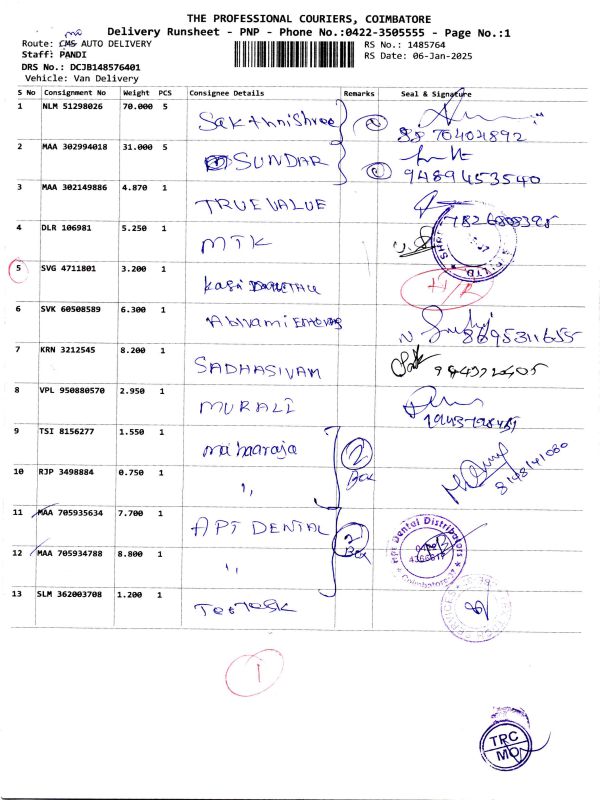 THE PROFESSIONAL COURIERS, COIMBATORE
Delivery Runsheet - PNP - Phone No.:0422-3505555 - Page No.:1
MO
Route: CMS AUTO DELIVERY
RS No.: 1485764
Staff: PANDI
RS Date: 06-Jan-2025
DRS No.: DCJB148576401
Vehicle: Van Delivery
S No Consignment No Weight PCS Consignee Details Remarks Seal & Signature
1 NLM 51298026 70.000 5 Sakthnishree
8870404892
2 MAA 302994018 31.000 5 SUNDAR
9489453540
3 MAA 302149886 4.870 1 TRUEVALUE
4 DLR 106981 5.250 1 MTK
5 SVG 4711801 3.200 1 Kasi
6 SVK 60508589 6.300 1 Abivami
8695311655
7 KRN 3212545 8.200 1 SADHASIVAM
8 VPL 950880570 2.950 1 MURALI
9 TSI 8156277 1.550 1 maihaaraja
2 Box
10 RJP 3498884 0.750 1 "
8148141080
11 MAA 705935634 7.700 1 APT DENTAL
2 Box
Apt Dental Distributors
Coimbatore
12 MAA 705934788 8.800 1 "
13 SLM 362003708 1.200 1
1
TRC
MO